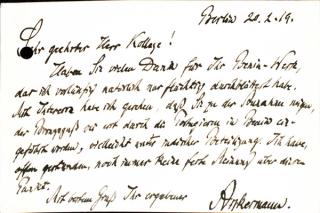 Berlin 20.2.19.
Sehr geehrter Herr Kollege!
Haben Sie vielen Dank für Ihr Benin-Werk,
das ich vorläufig natürlich nur flüchtig durchblättert habe.
Mit Interesse habe ich gesehen, daß Sie zu der Annahme neigen,
der Bronzeguß sei erst durch die Portugiesen in Benin ein-
geführt worden, vielleicht unter indischer Ich habe,
offen gestanden, noch immer keine feste Meinung über diesen
Punkt.
Mit bestem Gruß Ihr ergebener
Ankermann.